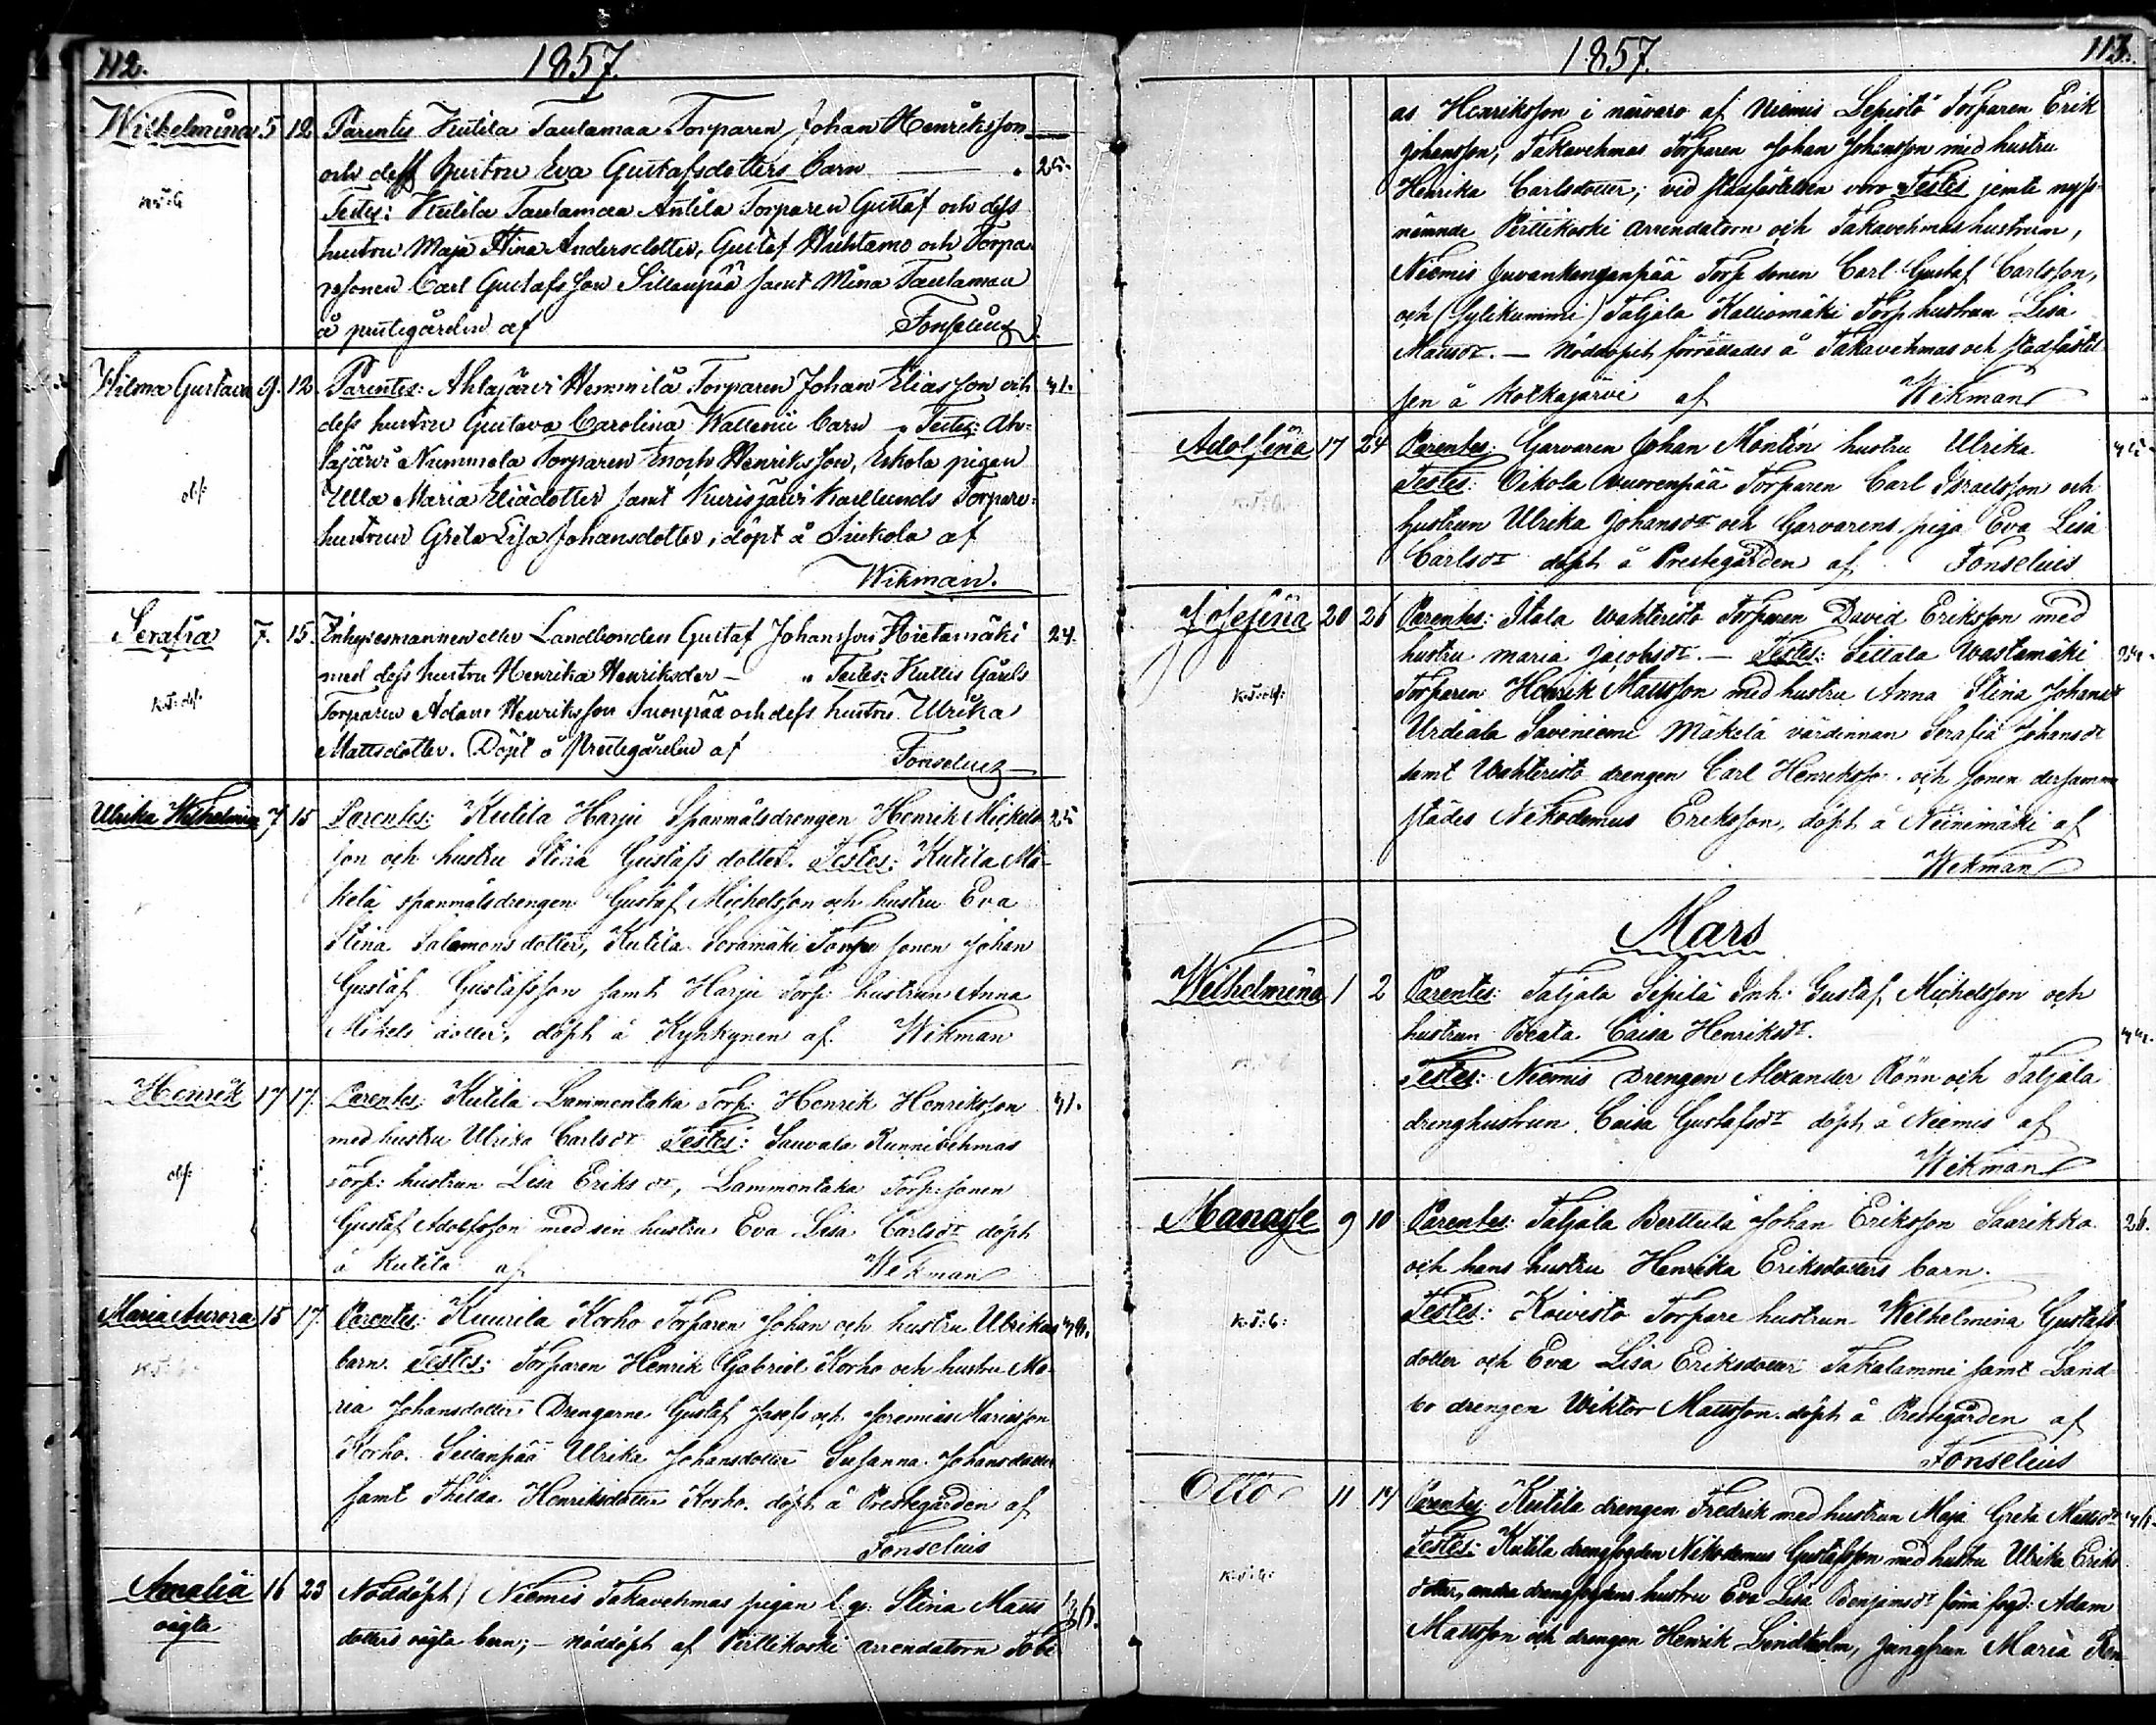 112. 1857.
Wilhelmina 5 12 Parentes Kutila Tautamaa Torparen Johan Henriksson
och dess hustru Eva Gustafsdotters barn — 25.
Testes: Kutila Tautamaa Antila Torparen Gustaf och dess
hustru Maja Stina Andersdotter, Gustaf Huhtamo och Torpa
resonen Carl Gustafsson Sillanpää samt Mina Tautamaa
å prestegården af Fonselius
Hilma Gustava 9. 12. Parentes: Ahlajärvi Hemmilä Torparen Johan Eliasson och 41.
dess hustru Gustava Carolina Wallenii barn — Testes: Ah=
lajärvi Nummela Torparen Enoch Henriksson, Eskola pigan
obf: Ulla Maria Eliædotter samt Kurisjärvi Karllunds Torpare=
hustrun Greta Lisa Johansdotter, döpt å Sickola af
Wikman.
Serafia 7. 15. Inhysesmannen eller Landbonden Gustaf Johansson Hietamäki 24.
med dess hustru Henrika Henriksdr — Testes: Kullis Gårds
Torparen Adam Henriksson Suonpää och dess hustru Ulrika
Mattsdotter. Döpt å Prestegården af Fonselius
Ulrika Wilhelmina 7 15 Parentes: Kutila Harju Spanmålsdrengen Henrik Mickels 25
son och hustru Stina Gustafs dotter. Testes: Kutila Mä-
kelä spanmålsdrengen Gustaf Michelsson och hustru Eva
Stina Salomons dotter, Kutila Soramäki Torpa sonen Johan
Gustaf Gustafsson samt Harju Torp: hustrun Anna
Mikels dotter, döpt å Kyhkynen af Wikman
Henrik 17 17. Parentes: Kutila Lammentaka Torp: Henrik Henriksson 41.
med hustru Ulrika Carlsdr Testes: Sauvala Runnivehmas
obf: Torp: hustrun Lisa Eriks dr, Lammentaka Torp: sonen
Gustaf Adolfsson med sin hustru Eva Lisa Carlsdr döpt
å Kutila af Wikman
Maria Aurora 15 17. Parentes: Kuurila Korho Torparen Johan och hustru Ulrikas
barn. Testes: Torparen Henrik Gabriel Korho och hustru Ma-
ria Johansdotter Drengarne Gustaf Josefs och Jeremias Mariasson
Korho. Sillanpää Ulrika Johansdotter Susanna Johansdotter
samt Thilda Henriksdotter Korho. döpt å Prestegården af
Fonselius
Amalia 16 23 Nöddöpt) Niemis Takavehmas pigan l. qv. Stina Matts
oägta dotters oägta barn; — nöddöpt af Perttikoski arrendatorn Tobi
1857. 113.
as Henriksson i närvaro af Niemis Lepistö Torparen Erik
Johansson, Takavehmas Torparen Johan Johansson med hustru
Henrika Carlsdotter; vid stadfästelsen voro Testes jemte nyss-
nämnde Perttikoski arrendatorn och Takavehmas hustrun,
Niemis Juvankengänpää Torp sonen Carl Gustaf Carlsson,
och (sylikummi) Taljala Kalliomäki Torp hustrun Lisa
Mattsdr. — Nöddopet förrättades å Takavehmas och stadfästel-
sen å Kotkajärvi af Wikman
Adolfina 17 24 Parentes: Garvaren Johan Montin hustru Ulrika.
Testes: Oikola Vuorenpää Torparen Carl Israelsson och
hustrun Ulrika Johansdr och Garvarens piga Eva Lisa
Carlsdr döpt å Prestegården af Fonselius
Josefina 20 26 Parentes: Itala Wahteristo Torparen David Eriksson med
hustru Maria Jacobsdr. — Testes: Sittala Wastamäki
Torparen Henrik Mattsson med hustru Anna Stina Johansdr
Urdiala Saviniemi Mäkelä värdinnan Serafia Johansdr
samt Wahteristo drengen Carl Henriksson och sonen dersamma
städes Nikodemus Eriksson, döpt å Niinimäki af
Wikman
Mars
Wilhelmina 1 2 Parentes: Taljala Sepilä Inh: Gustaf Michelsson och
hustrun Beata Caisa Henriksdr.
Testes: Niemis Drengen Alexander Rönn och Taljala
drenghustrun Caisa Gustafsdr döpt å Niemis af
Wikman
Manasse 9 10 Parentes: Taljala Berttula Johan Eriksson Saarikko 26.
och hans hustru Henrika Eriksdotters barn.
k.J:6: Testes: Koivisto Torpare hustrun Wilhelmina Gustafs
dotter och Eva Lisa Eriksdotter Takalammi samt Land-
bo drengen Wiktor Mattsson döpt å Prestegården af
Fonselius
Otto 11 14 Parentes: Kutila drengen Fredrik med hustrun Maja Greta Mattsdr
Testes: Kutila drengfogden Nikodemus Gustafsson med hustru Ulrika Eriks
dotter, andra drengfogdens hustru Eva Lisa Benjamsdr förra fogd: Adam
Mattsson och drengen Henrik Lindholm, jungfrun Maria Ren-